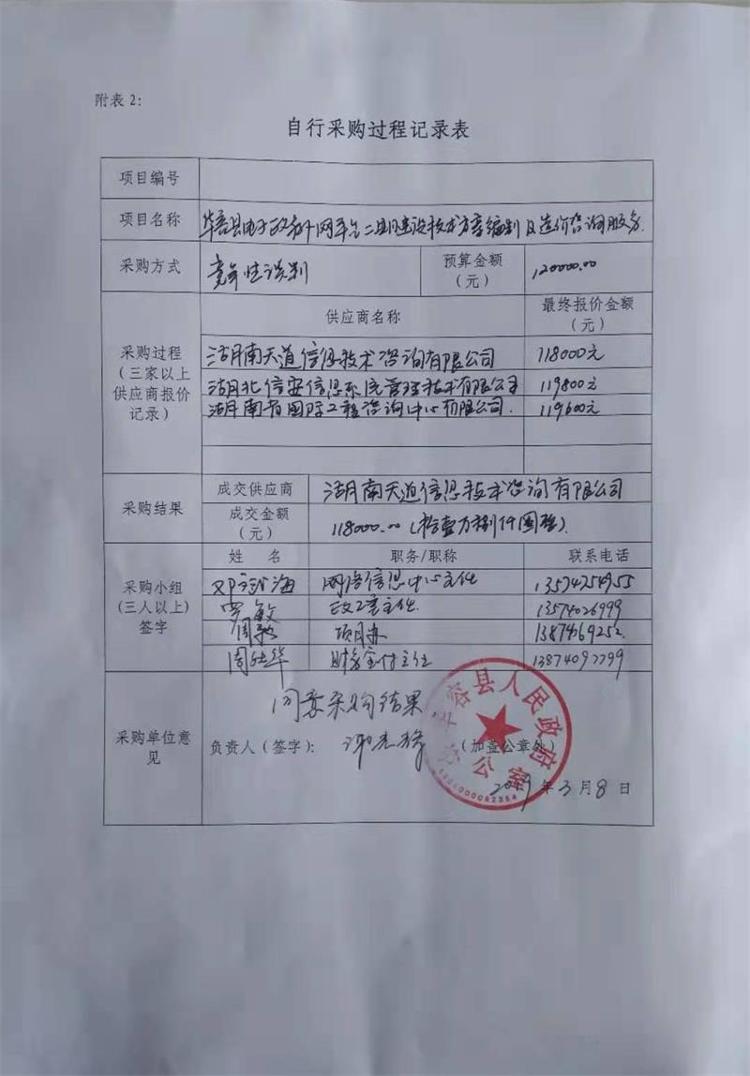 附表2：
自行采购过程记录表
项目编号
项目名称 华容县电子政务外网平台二期建设技术方案编制及造价咨询服务
采购方式 竞争性谈判 预算金额（元） 120000.00
采购过程（三家以上供应商报价记录） 供应商名称 最终报价金额（元）
湖南天道信息技术咨询有限公司 118000元
湖北信安信息系统管理技术有限公司 119800元
湖南省国际工程咨询中心有限公司. 119600元
采购结果 成交供应商 湖南天道信息技术咨询有限公司
成交金额（元） 118000.00（
采购小组(三人以上)签字 姓 名 职务/职称 联系电话
网络信息中心主任 13574754955
罗敏 政工室主任 13574026999
周毅 项目办 13874769252
财务室主任 13874092799
同意采购结果
采购单位意见 负责人（签字）： （加盖公章处）
2019年3月8日
华容县人民政府
办公室